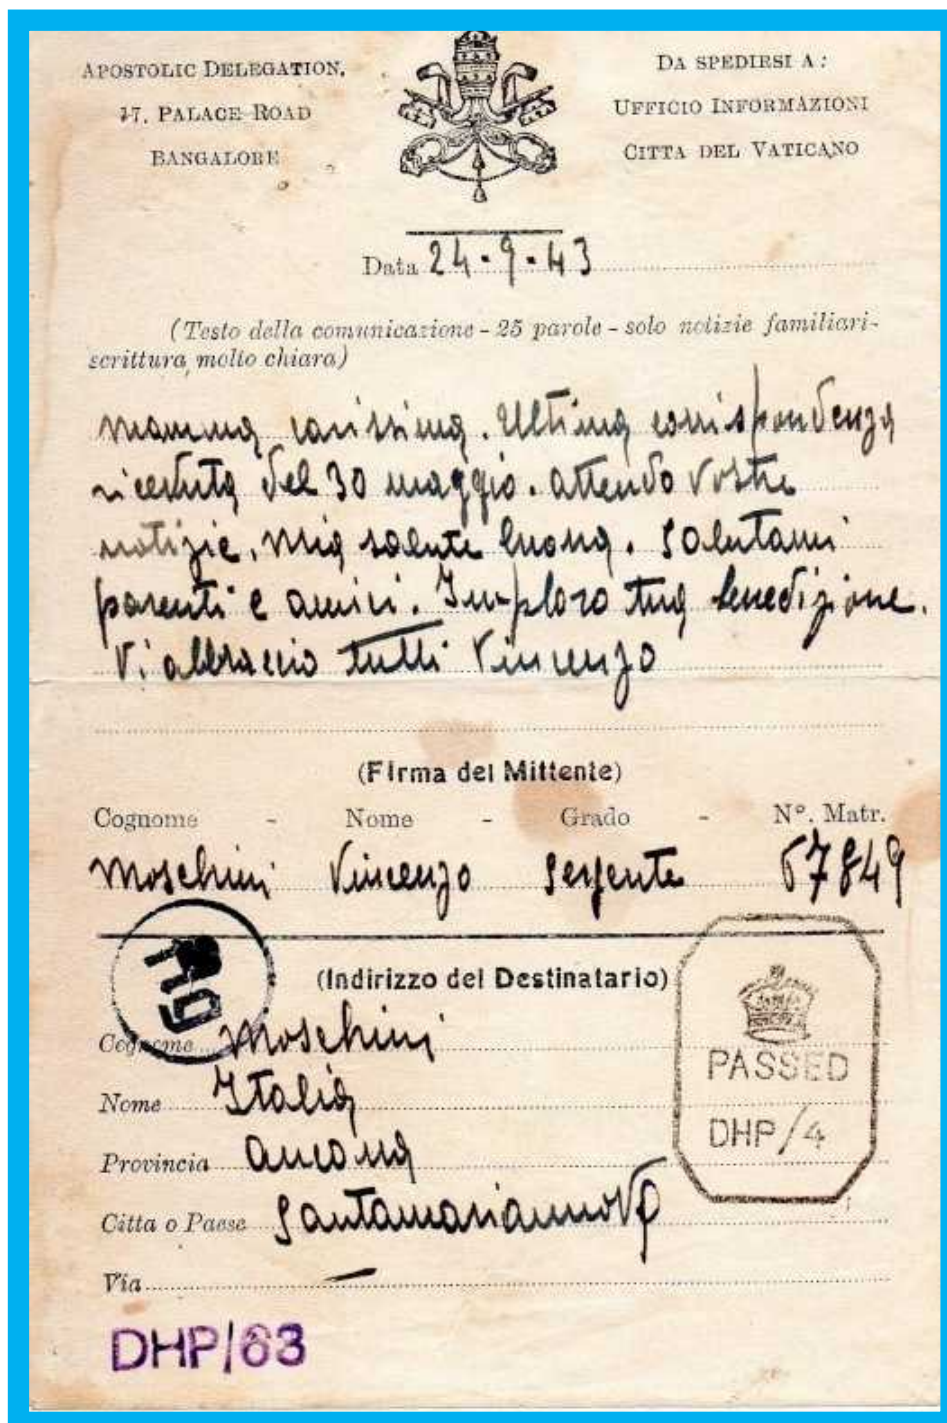 APOSTOLIC DELEGATION,
17, PALACE ROAD
BANGALORE
DA SPEDIRSI A:
UFFICIO INFORMAZIONI
CITTA DEL VATICANO
Data 24-9-43
(Testo della comunicazione - 25 parole - solo notizie familiari-
scrittura molto chiara)
Mamma carissima. Ultima corrispondenza
ricevuta del 30 maggio. Attendo vostre
notizie. Mia salute buona. Salutami
parenti e amici. Imploro tua benedizione.
Vi abbraccio tutti Vincenzo
(Firma del Mittente)
Cognome - Nome - Grado - N°. Matr.
Moschini Vincenzo Sergente 67849
(Indirizzo del Destinatario)
Cognome Moschini
Nome Italia
Provincia Ancona
Citta o Paese Santamarianova
Via —
PASSED
DHP/4
DHP/63